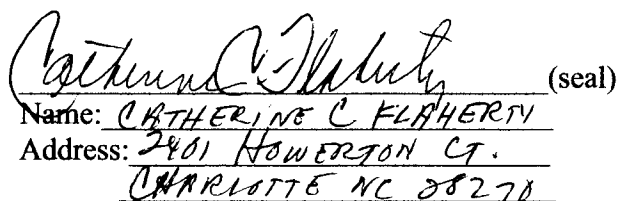 Catherine C. Flaherty (seal)
Name: CATHERINE C FLAHERTY
Address: 2401 HOWERTON CT.
CHARLOTTE NC 28270